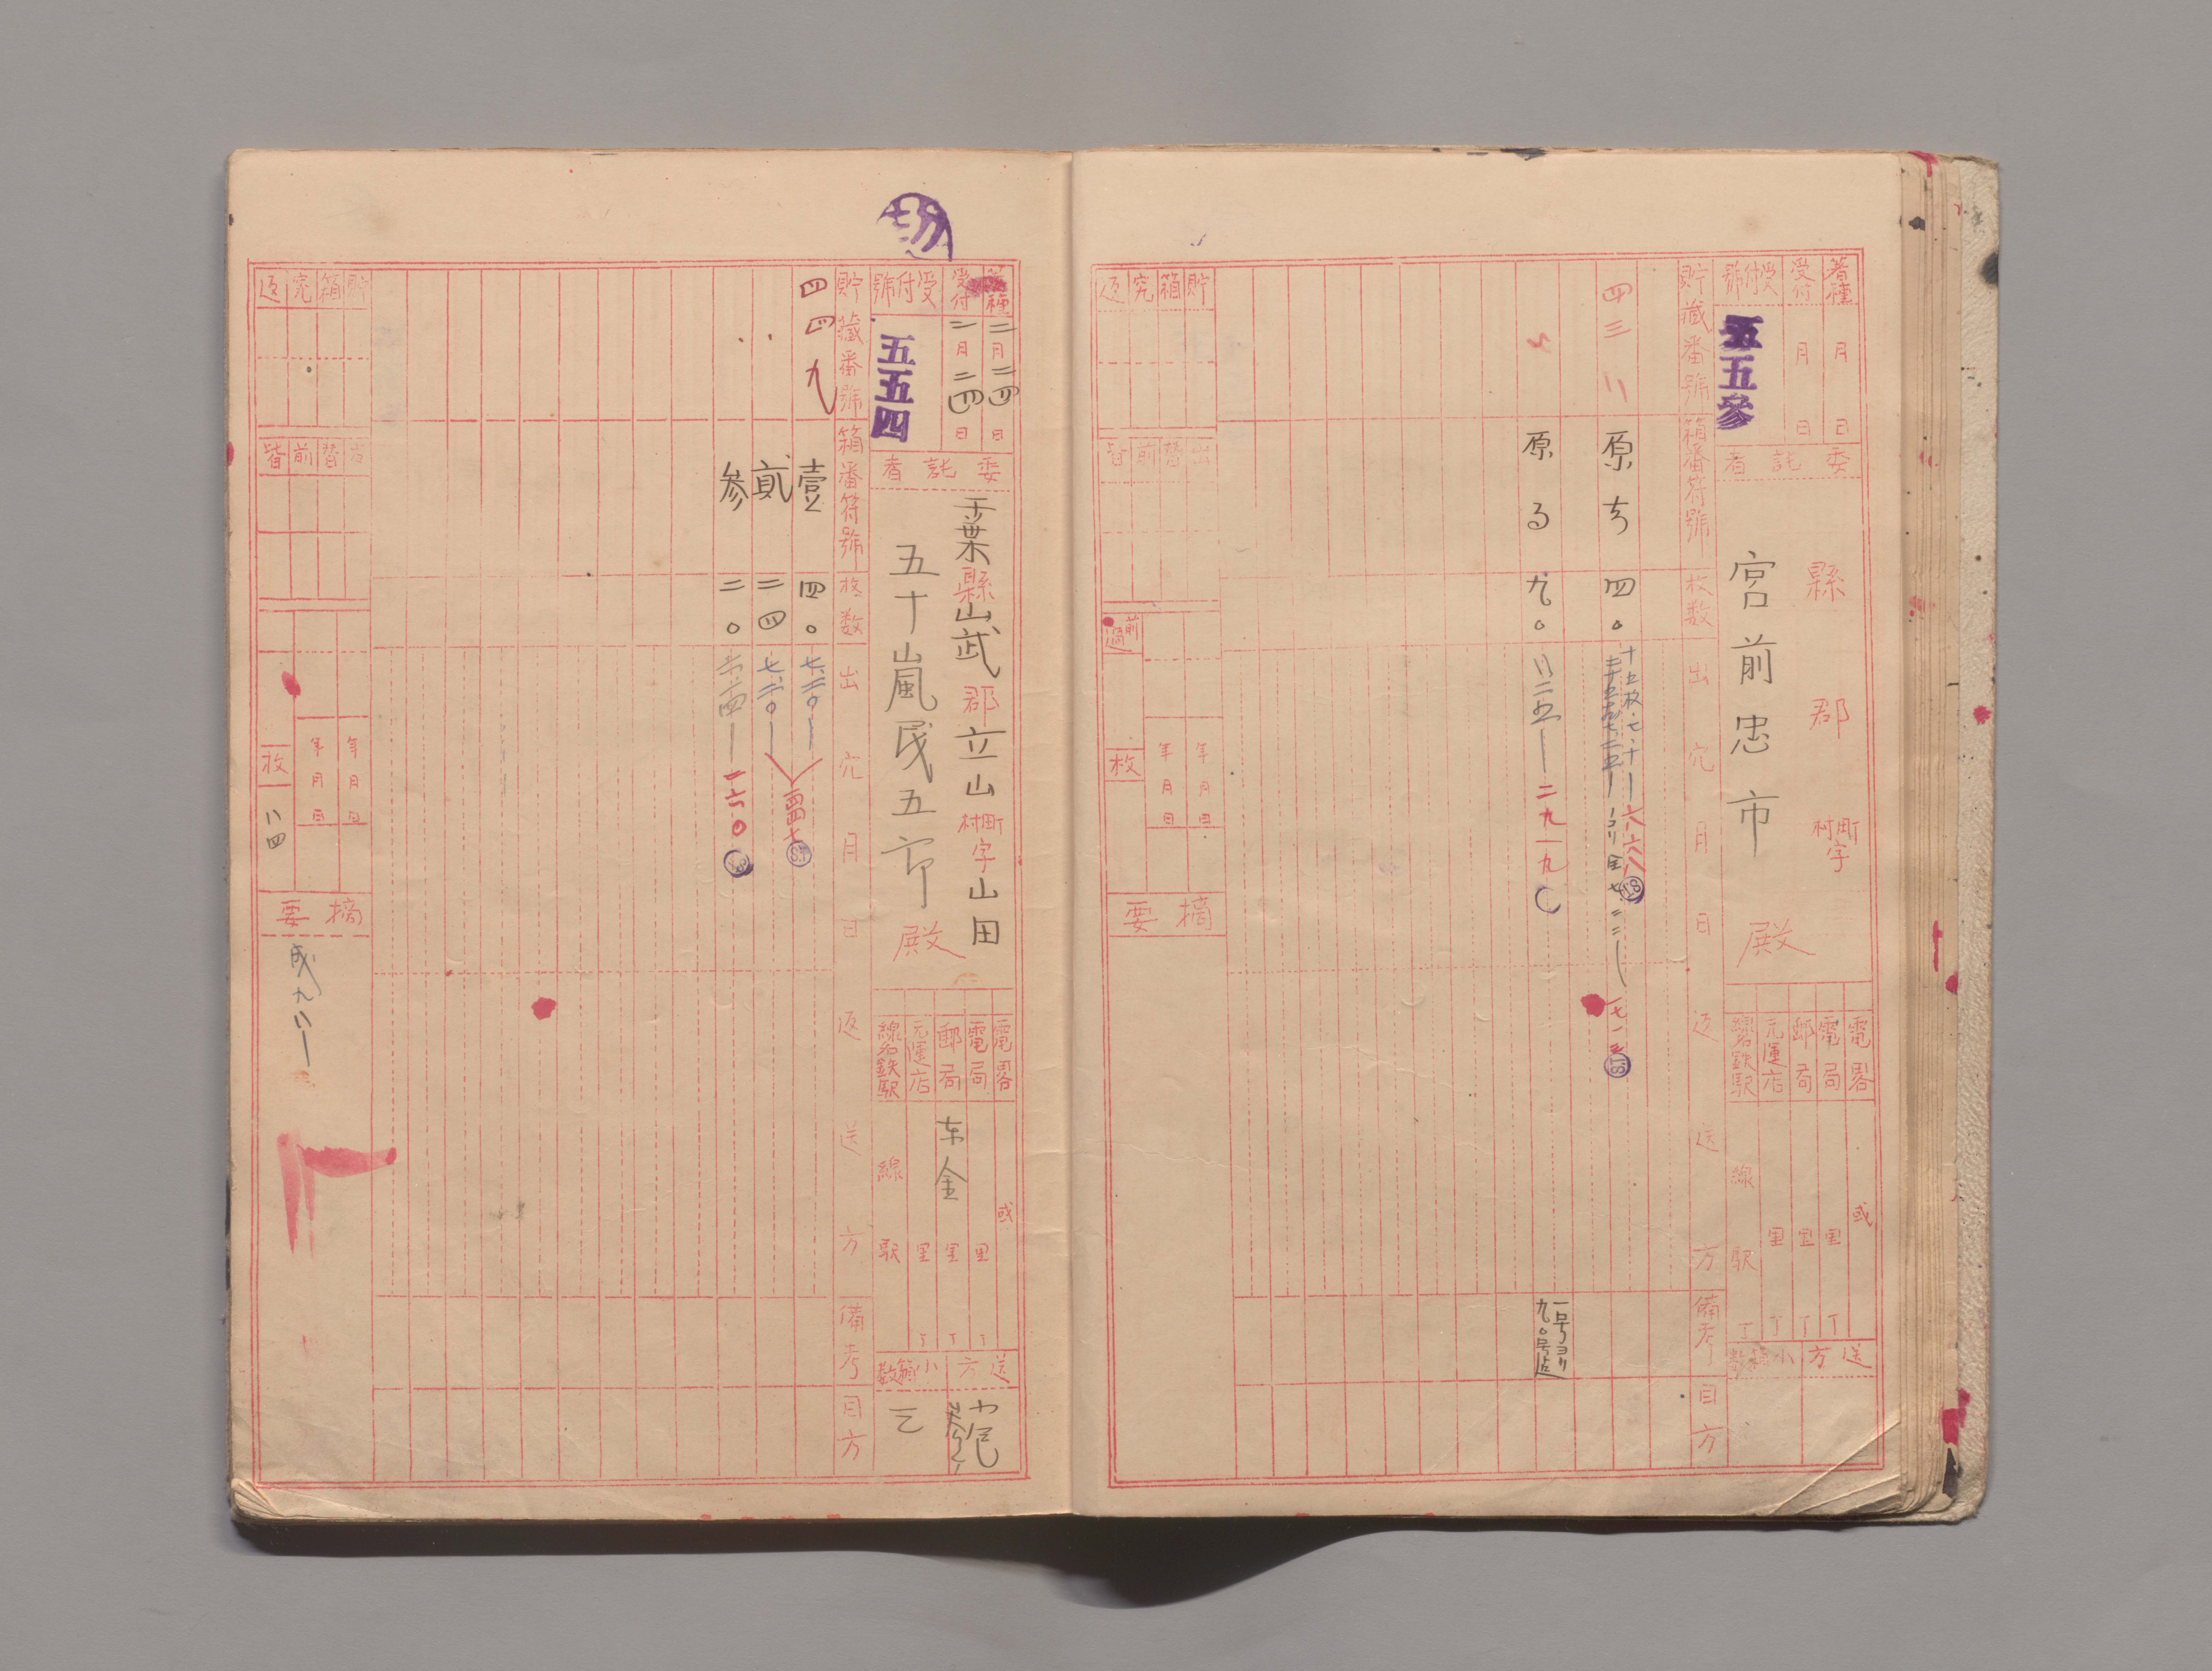 着種 月 日
受付 月 日
受付號 五五参
委託者
縣 郡 町村 字
宮前忠市 殿
電畧 或
電局 里 丁
郵局 里 丁
元運店 里 丁
線名鉄駅 線 駅 丁
送方
小箱数
貯藏番號 箱番符號 枚数 出穴月日 返送方 備考 目方
四三八 原ち 四〇
十五枚七、十一 六六八
一七一三
原る 九〇 八二五 二九一九
一号ヨリ
九〇号迠
貯箱究返
出替前皆
前過
年月日
年月日
枚
摘要
着種 二月二四日
受付 二月二四日
受付號 五五四
委託者
千葉縣山武郡立山町村字山田
五十嵐民五郎殿
電畧 或
電局 里 丁
郵局 东金 里 丁
元運店 里 丁
線名鉄駅 線 駅
送方
小箱数 三
貯藏番號 箱番符號 枚数 出穴月日 返送方 備考 目方
四四九 壹 四〇 七、二〇
貳 二四 七、二〇
参 二〇 一六〇
貯箱究返
出替前皆
年月日
年月日
枚 八四
摘要
成九八